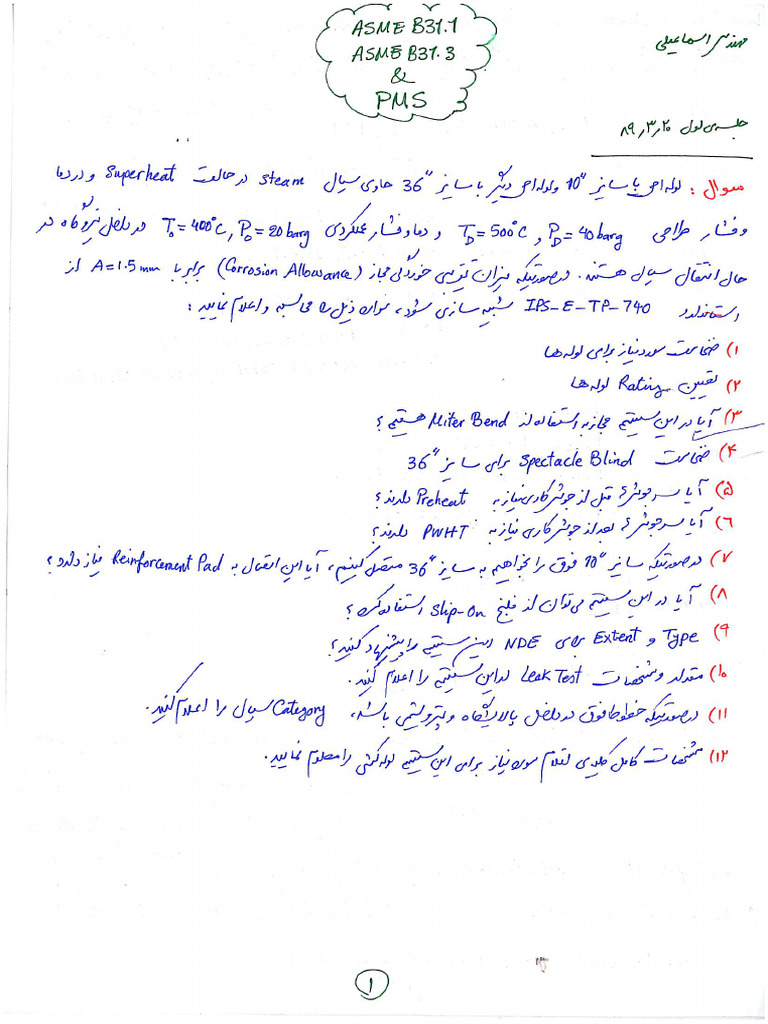 ASME B31.1
ASME B31.3
&
PMS
مهندس اسماعیلی
جلسه‌ی اول ۸۹٫۳٫۲۰
سوال : لوله‌ای با سایز "10 و لوله‌ای دیگر با سایز "36 حاوی سیال Steam در حالت Superheat و در دما
و فشار طراحی T_D=500°C , P_D=40 barg و دما و فشار عملکردی T_o=400°C, P_o=20 barg در داخل نیروگاه در
حال انتقال سیال هستند. در صورتیکه میزان تقریبی خوردگی مجاز (Corrosion Allowance) برابر با A=1.5 mm از
استاندارد IPS-E-TP-740 شبیه سازی شود، موارد ذیل را محاسبه و اعلام نمایید :
۱) ضخامت مورد نیاز برای لوله ها
۲) تعیین Rating لوله ها
۳) آیا در این سیستم مجاز به استفاده از Miter Bend هستیم ؟
۴) ضخامت Spectacle Blind برای سایز "36
۵) آیا سرجوش‌ها قبل از جوشکاری نیاز به Preheat دارند؟
۶) آیا سرجوش‌ها بعد از جوشکاری نیاز به PWHT دارند؟
۷) در صورتیکه سایز "10 فوق را بخواهیم به سایز "36 متصل کنیم، آیا این اتصال به Reinforcement Pad نیاز دارد؟
۸) آیا در این سیستم می‌توان از فلنج Slip-On استفاده کرد؟
۹) Type و Extent برای NDE این سیستم را پیشنهاد کنید؟
۱۰) مقدار و مشخصات Leak Test در این سیستم را اعلام کنید.
۱۱) در صورتیکه خطوط فوق در داخل پالایشگاه و پتروشیمی باشد، Category سیال را اعلام کنید.
۱۲) مشخصات کامل کلیه‌ی اقلام مورد نیاز برای این سیستم لوله کشی را معلوم نمایید.
۱